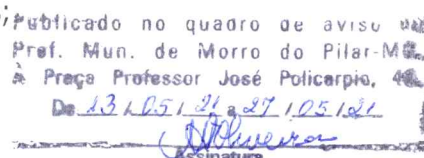 Publicado no quadro de aviso da
Pref. Mun. de Morro do Pilar-MG
à Praça Professor José Policarpio,
De 13/05/21 a 27/05/21
Assinatura